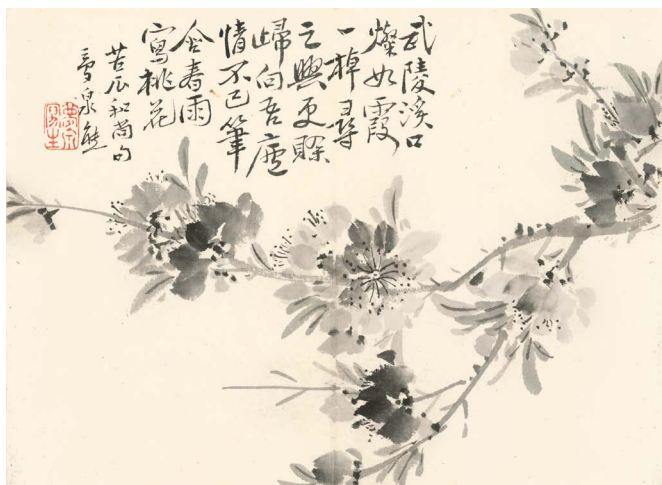 武陵溪口
燦如霞
一棹尋
之興更賒
歸向吾廬
情不已筆
含春雨
寫桃花
苦瓜和尚句
泉